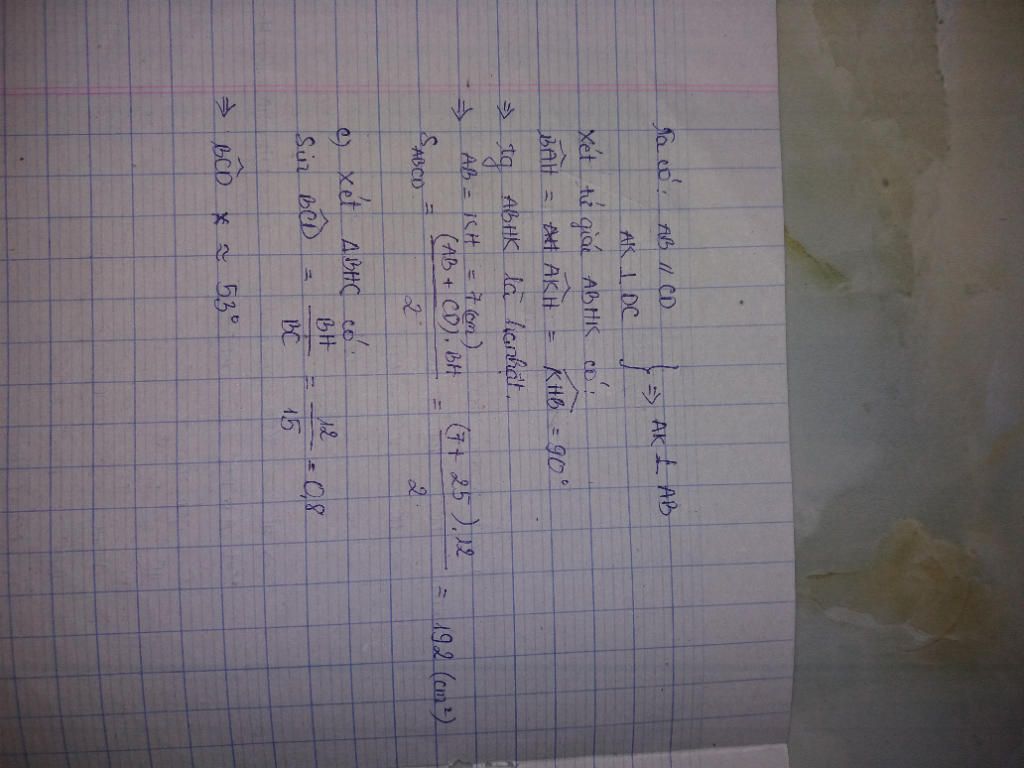 Ta có: AB // CD
AK ⊥ DC } ⇒ AK ⊥ AB
Xét tứ giác ABHK có:
BÂH = AK̂H = KĤB = 90°
⇒ tg ABHK là hcnhật.
⇒ AB = KH = 7(cm)
S_ABCD = (AB + CD).BH / 2 = (7 + 25).12 / 2 = 192 (cm²)
c) Xét ΔBHC có:
Sin BĈD = BH / BC = 12 / 15 = 0,8
⇒ BĈD ≈ 53°